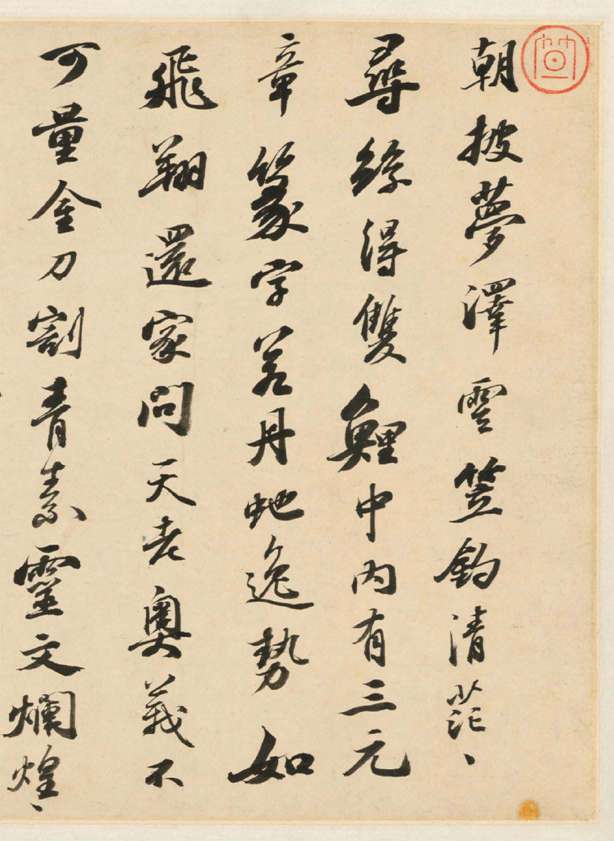 朝披夢澤雲笠釣清茫〻
尋絲得雙鯉中内有三元
章篆字若丹虵逸勢如
飛翔還家問天老奧義不
可量金刀割青素靈文爛煌〻